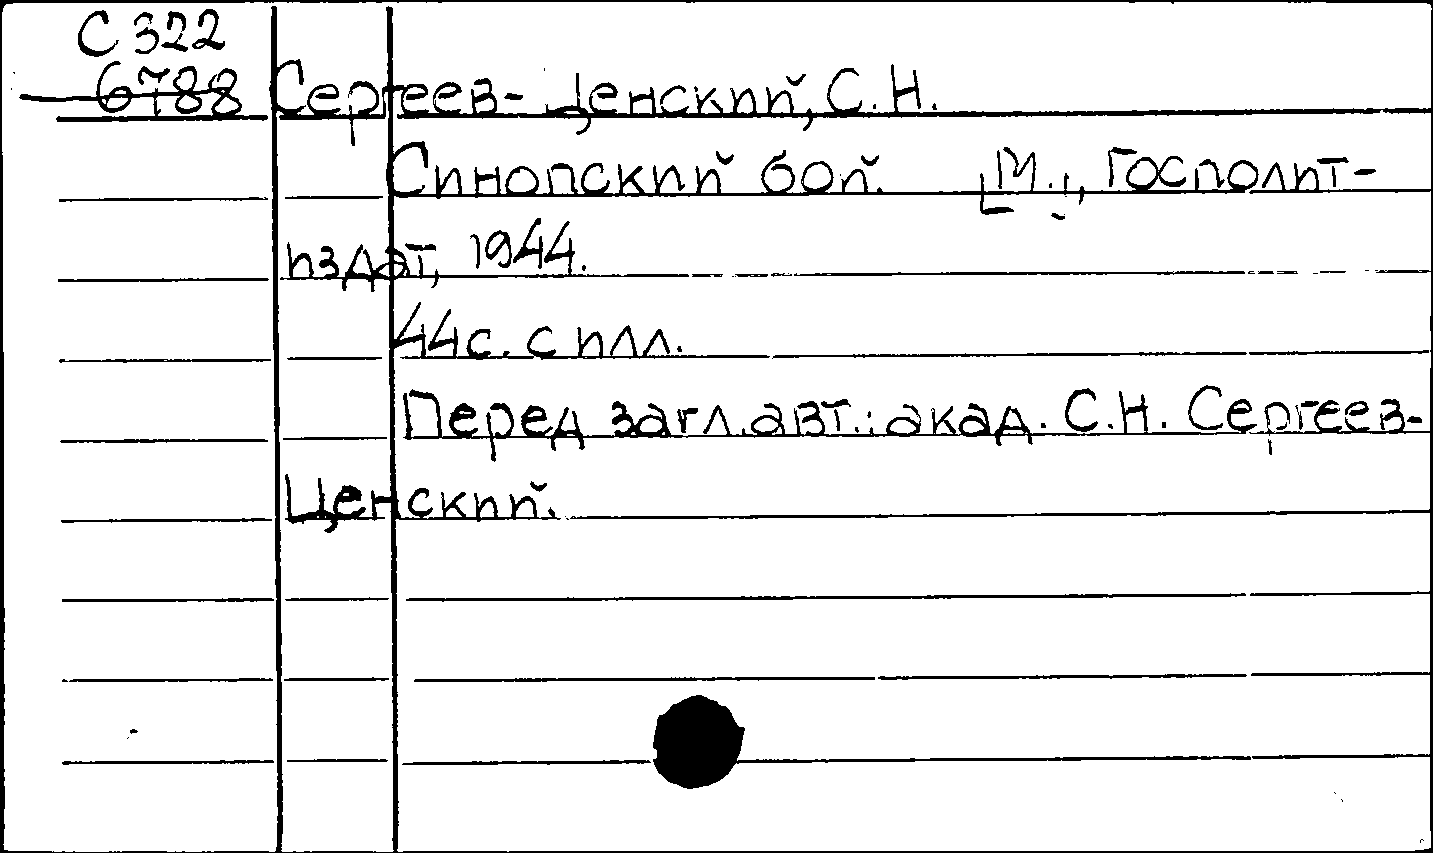 С 322
6788 Сергеев-Ценский, С.Н.
Синопский бой. [М.], Госполит-
издат, 1944.
44 с. с илл.
Перед загл. авт.: акад. С.Н. Сергеев-
Ценский.